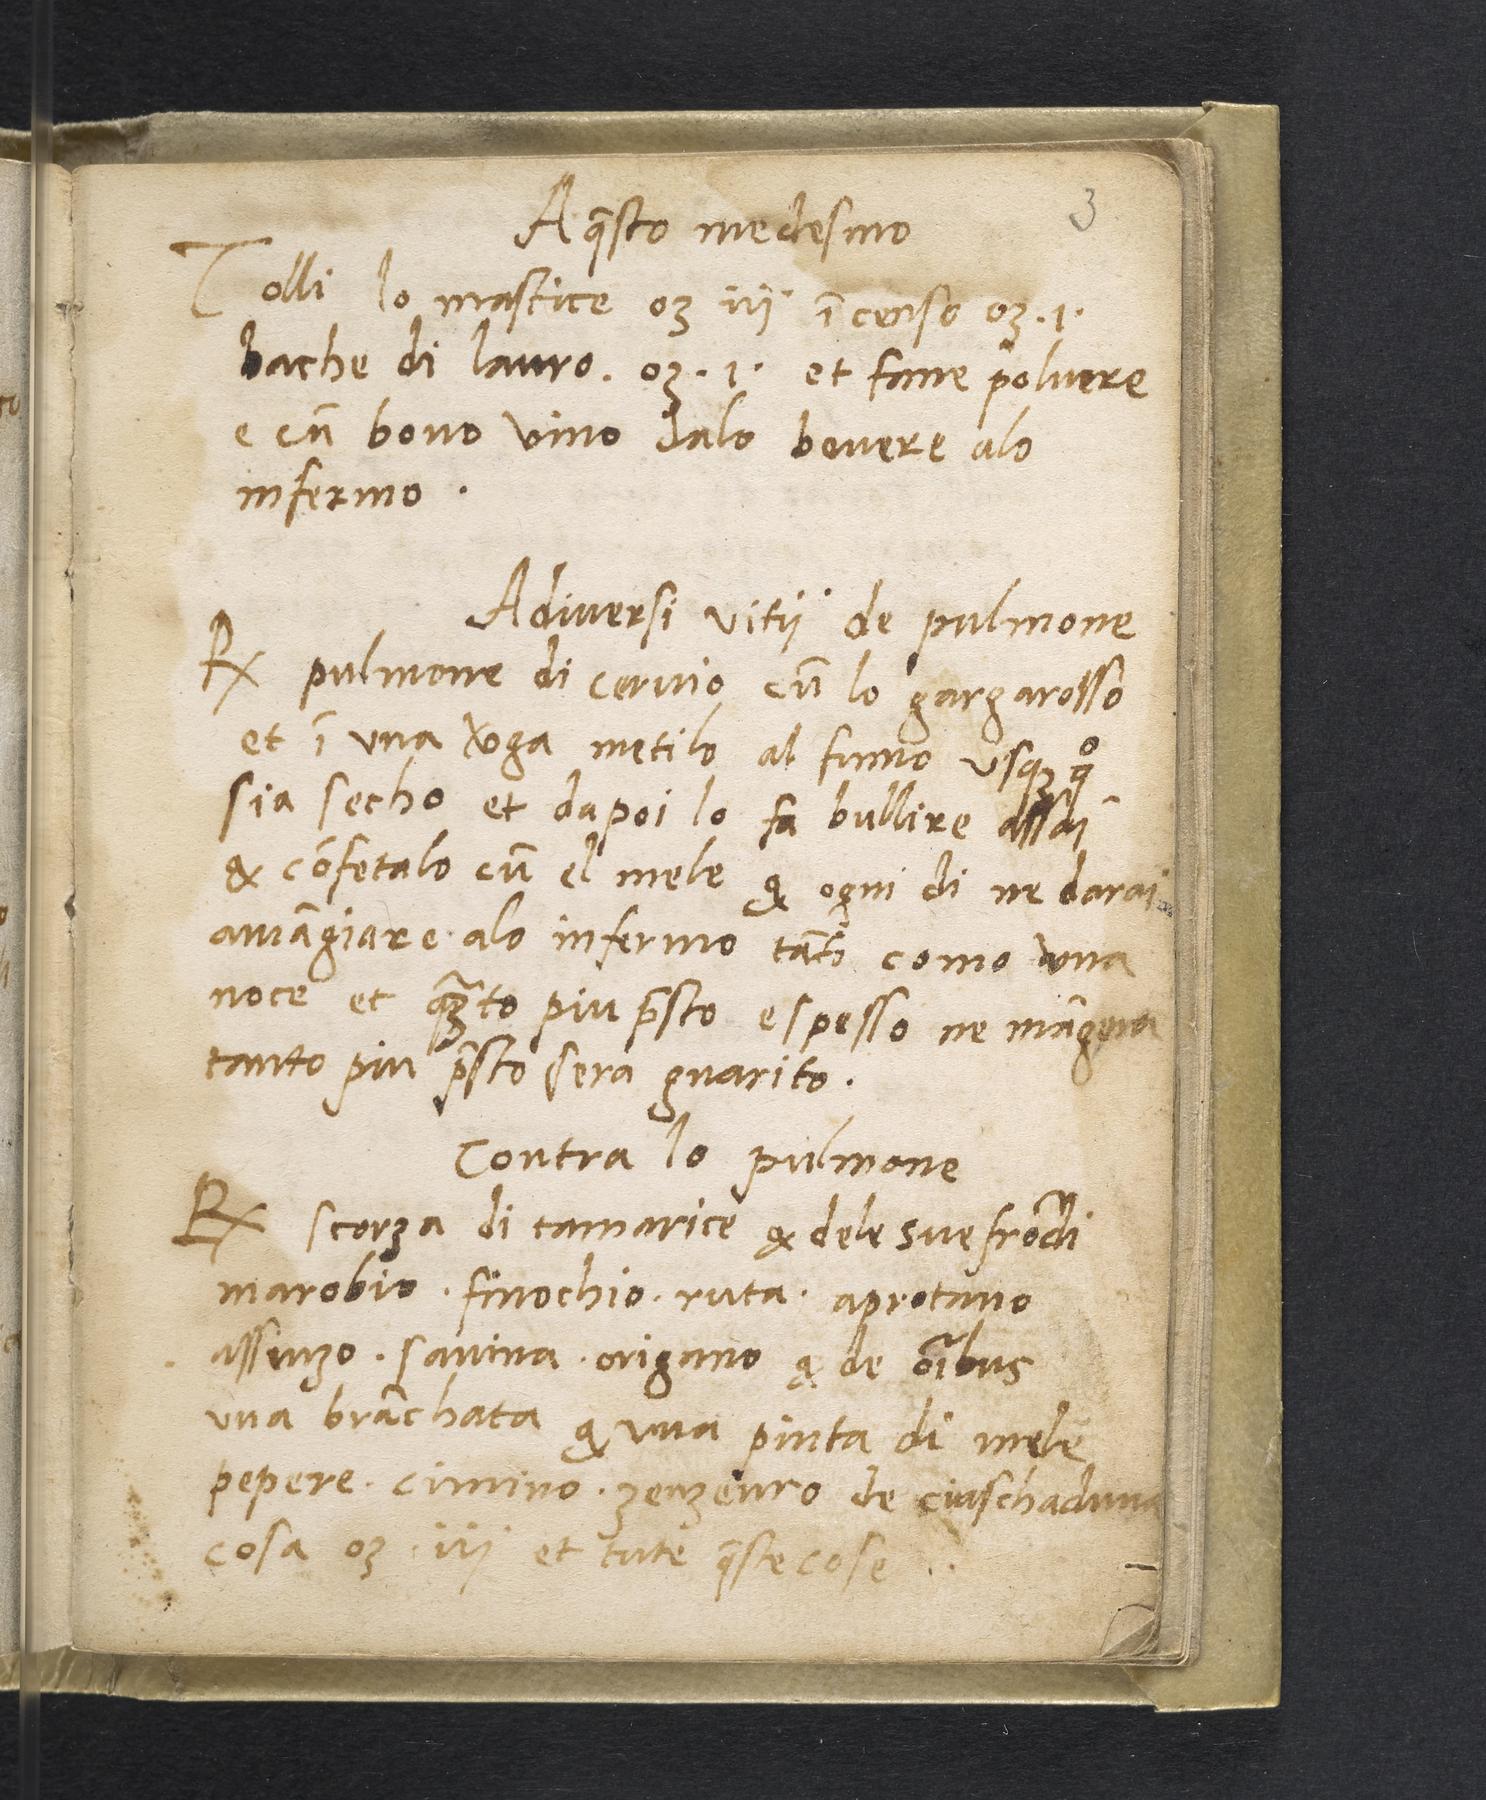 3
A q̄sto medesmo
Tolli lo mastice oz iij īcenso oz . 1 .
bache di lauro . oz . 1 . et fane poluere
e cū bono vino dalo beuere alo
infermo .
Adiuersi vitij de pulmone
℞ pulmone di ceruio cū lo gargarosso
et ī vna metilo al fumo vsqꝫ qͦ
sia secho et dapoi lo fa bullire assai
& cōfetalo cū el mele & ogni di ne darai
amāgiare alo infermo tāto como vna
noce et to piu p̄sto espesso ne māgera
tanto piu p̄sto sera guarito .
Contra lo pulmone
℞ scorza di tamarice & dele sue frōdi
marobio . finochio . ruta . aprotano
assenzo . sauina . origano & de oībus
vna brāchata & vna pinta di mele
pepere . cimino . zenzeuro de ciaschaduna
cosa oz . iij et tute q̄ste cose . .